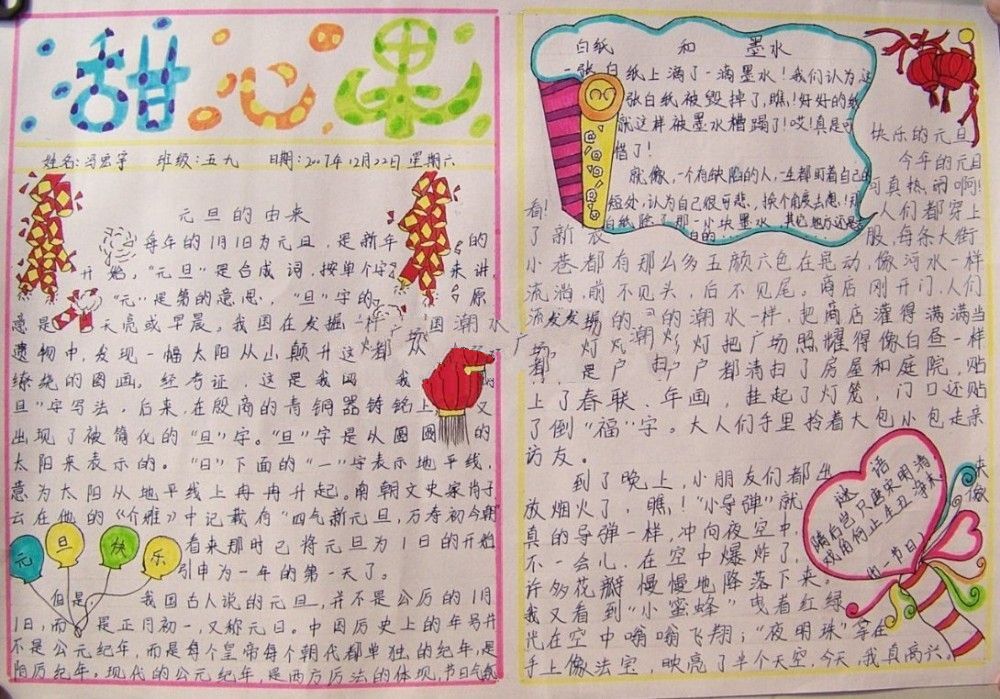 甜心果
姓名:冯宏宇 班级:五九 日期:2007年12月22日 星期六
元旦的由来
每年的1月1日为元旦,是新年的
开始,“元旦”是合成词,按单个字 来讲,
“元”是第的意思,“旦”字的 原
意是 天亮或早晨。我国在发掘
遗物中,发现一幅太阳从山颠升
缭绕的图画。经考证,这是我国 我
旦”字写法,后来,在殷商的青铜器铸铭上 又
出现了被简化的“旦”字。“旦”字是以圆圆 的
太阳来表示的。“日”下面的“一”字表示地平线,
意为太阳从地平线上冉冉升起。南朝文史家肖子
云在他的《介雅》中记载有“四气新元旦,万寿初今朝
看来那时已将元旦为1日的开始
引申为一年的第一天了。
元旦快乐
但是, 我国古人说的元旦,并不是公历的1月
1日,而 是正月初一,又称元日。中国历史上的年号并
不是公元纪年,而是每个皇帝每个朝代都单独的纪年,是
阴历纪年。现代的公元纪年,是西方历法的体现,节日气氛
白纸 和 墨水
一张白纸上滴了一滴墨水!我们认为这
张白纸被毁掉了,瞧!好好的纸
就这样被墨水糟蹋了!哎!真是可
惜了!
就像,一个有缺陷的人,一生都盯着自己的
短处,认为自己很可悲,换个角度去想!
白纸除了那一小块墨水,其它地方还是
白的
快乐的元旦
今年的元旦
可真热闹啊!
看! 人们都穿上
了新衣服,每条大街
小巷都有那么多五颜六色在晃动,像河水一样
流淌,前不见头,后不见尾。商店刚开门,人们
的潮水一样,把商店灌得满满当
灯把广场照耀得像白昼一样
是户户都清扫了房屋和庭院,贴
上了春联、年画,挂起了灯笼,门口还贴
了倒“福”字。大人们手里拎着大包小包走亲
访友。
到了晚上,小朋友们都出
放烟火了,瞧!“小导弹”就
真的导弹一样,冲向夜空中,
不一会儿,在空中爆炸了,
许多花瓣慢慢地降落下来。
我又看到“小蜜蜂”曳着红绿
在空中嗡嗡飞翔;“夜明珠”
手上像法宝,映亮了半个天空,今天,我真高兴。
谜语
(一节日)